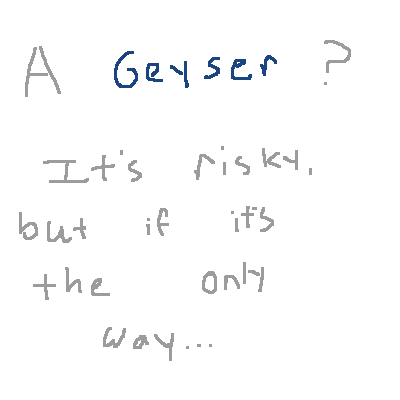 A Geyser ?
It's risky,
but if it's
the only
way...